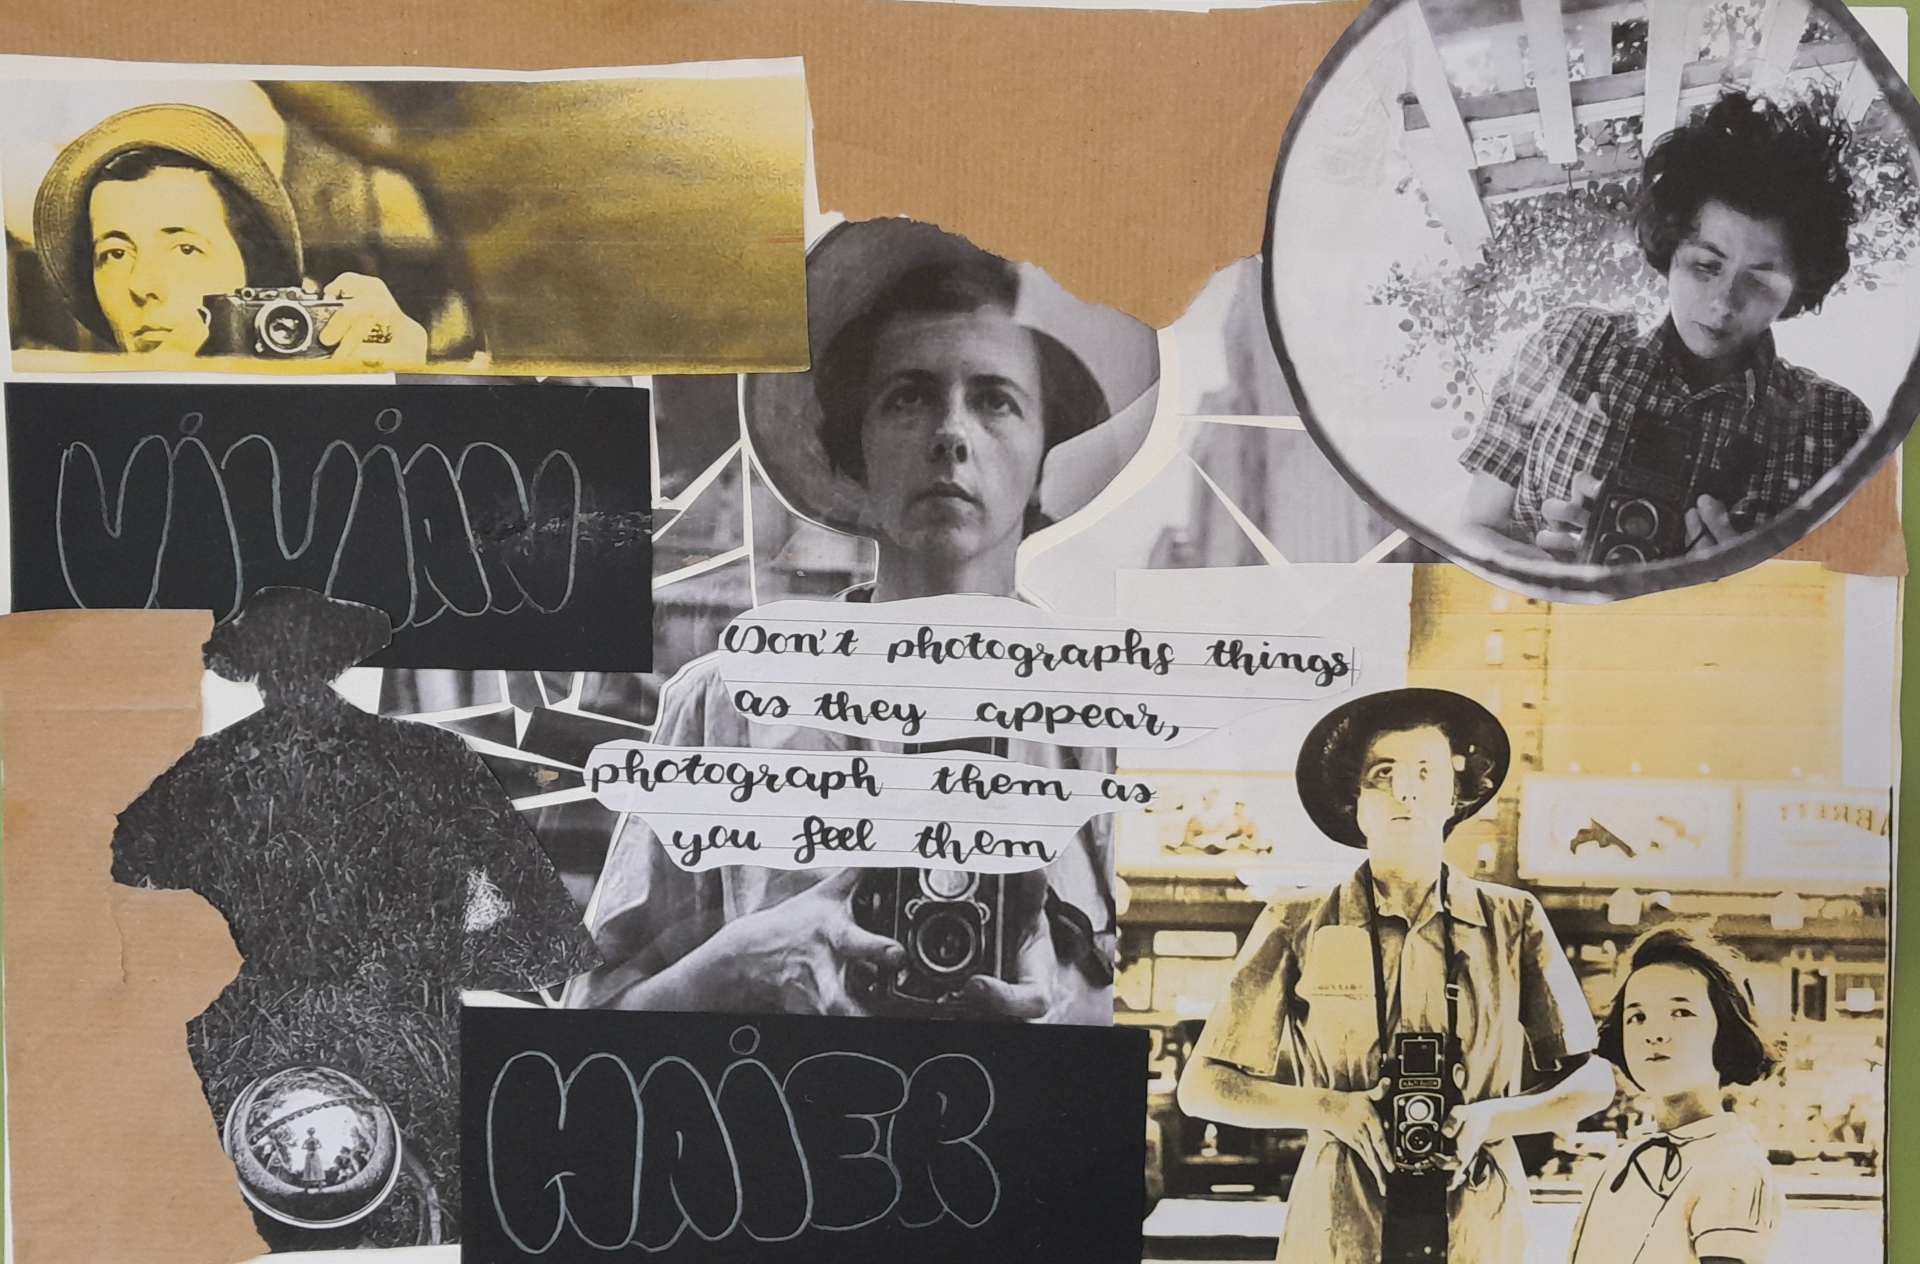 ViViAN
Don't photographs things
as they appear,
photograph them as
you feel them
MAiER